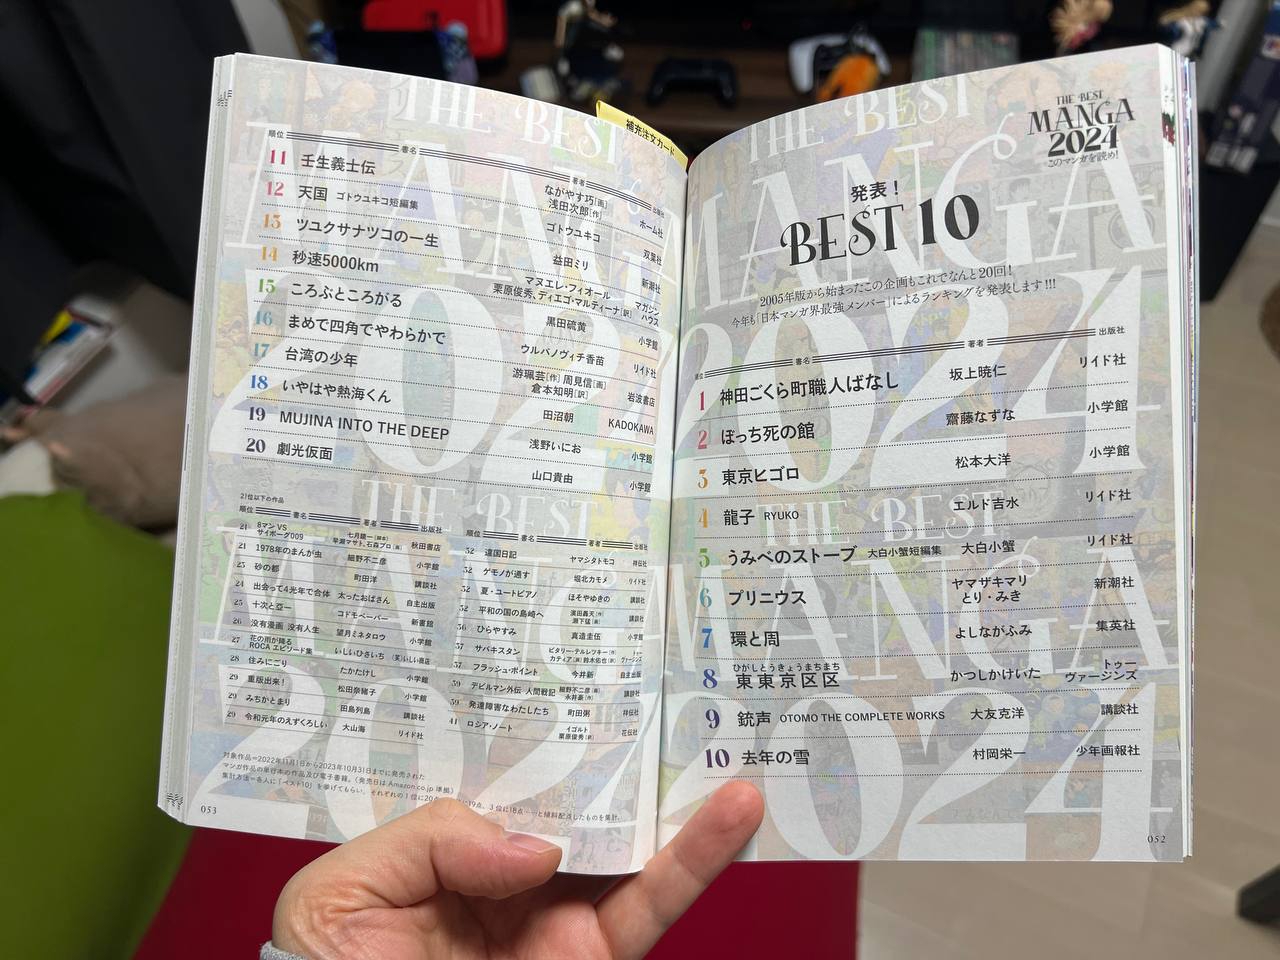 補充注文カード
THE BEST
MANGA
2024
このマンガを読め!
発表!
BEST 10
2005年版から始まったこの企画もこれでなんと20回!
今年も「日本マンガ界最強メンバー」によるランキングを発表します!!!
順位 書名 著者 出版社
1 神田ごくら町職人ばなし 坂上暁仁 リイド社
2 ぼっち死の館 齋藤なずな 小学館
3 東京ヒゴロ 松本大洋 小学館
4 龍子 RYUKO エルド吉水 リイド社
5 うみべのストーブ 大白小蟹短編集 大白小蟹 リイド社
6 プリニウス ヤマザキマリ とり・みき 新潮社
7 環と周 よしながふみ 集英社
8 東東京区区 ひがしとうきょうまちまち かつしかけいた トゥーヴァージンズ
9 銃声 OTOMO THE COMPLETE WORKS 大友克洋 講談社
10 去年の雪 村岡栄一 少年画報社
052
順位 書名 著者 出版社
11 壬生義士伝 ながやす巧[画] 浅田次郎[作] ホーム社
12 天国 ゴトウユキコ短編集 ゴトウユキコ 双葉社
13 ツユクサナツコの一生 益田ミリ 新潮社
14 秒速5000km マヌエレ・フィオール 栗原俊秀、ディエゴ・マルティーナ[訳] マガジンハウス
15 ころぶところがる 黒田硫黄 小学館
16 まめで四角でやわらかで ウルバノヴィチ香苗 リイド社
17 台湾の少年 游珮芸[作] 周見信[画] 倉本知明[訳] 岩波書店
18 いやはや熱海くん 田沼朝 KADOKAWA
19 MUJINA INTO THE DEEP 浅野いにお 小学館
20 劇光仮面 山口貴由 小学館
21位以下の作品
順位 書名 著者 出版社
21 8マン VS サイボーグ009 七月鏡一[脚本] 早瀬マサト、石森プロ[画] 秋田書店
21 1978年のまんが虫 細野不二彦 小学館
23 砂の都 町田洋 講談社
24 出会って4光年で合体 太ったおばさん 自主出版
25 十次と亞一 コドモペーパー 新書館
26 没有漫画 没有人生 望月ミネタロウ 小学館
27 花の雨が降る ROCA エピソード集 いしいひさいち (笑)いしい商店
28 住みにごり たかたけし 小学館
29 重版出来! 松田奈緒子 小学館
29 みちかとまり 田島列島 講談社
29 令和元年のえずくろしい 大山海 リイド社
順位 書名 著者 出版社
32 違国日記 ヤマシタトモコ 祥伝社
32 ゲモノが通す 堀北カモメ リイド社
32 夏・ユートピアノ ほそやゆきの 講談社
32 平和の国の島崎へ 濱田轟天[作] 瀬下猛[画] 講談社
36 ひらやすみ 真造圭伍 小学館
37 サバキスタン ビタリー・テルレツキー[作] カティア[画] 鈴木佑也[訳] トゥーヴァージンズ
37 フラッシュ・ポイント 今井新 自主出版
39 デビルマン外伝 人間戦記 細野不二彦[画] 永井豪[作] 講談社
39 発達障害なわたしたち 町田粥 祥伝社
41 ロシア・ノート イゴルト 栗原俊秀[訳] 花伝社
対象作品=2022年11月1日から2023年10月31日までに発売された
マンガ作品の単行本の作品及び電子書籍。(発売日は Amazon.co.jp 準拠)
集計方法=各人に「ベスト10」を挙げてもらい、それぞれの1位に20点、
19点、3位に18点……と傾斜配点したものを集計。
053